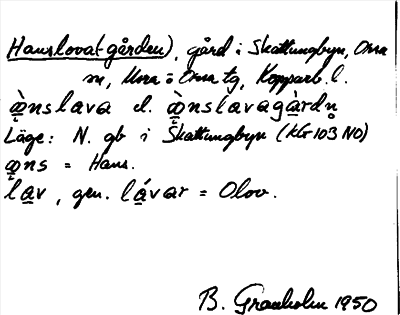 Hanslova(-gården), gård i Skattungbyn, Orsa
sn, Mora o Orsa tg, Kopparb. l.
ànslava el. ànslavagàrdn̥
Läge: N. gb i Skattungbyn (KG 103 NO)
ans = Hans.
lav, gen. lávar = Olov.
B. Granholm 1950